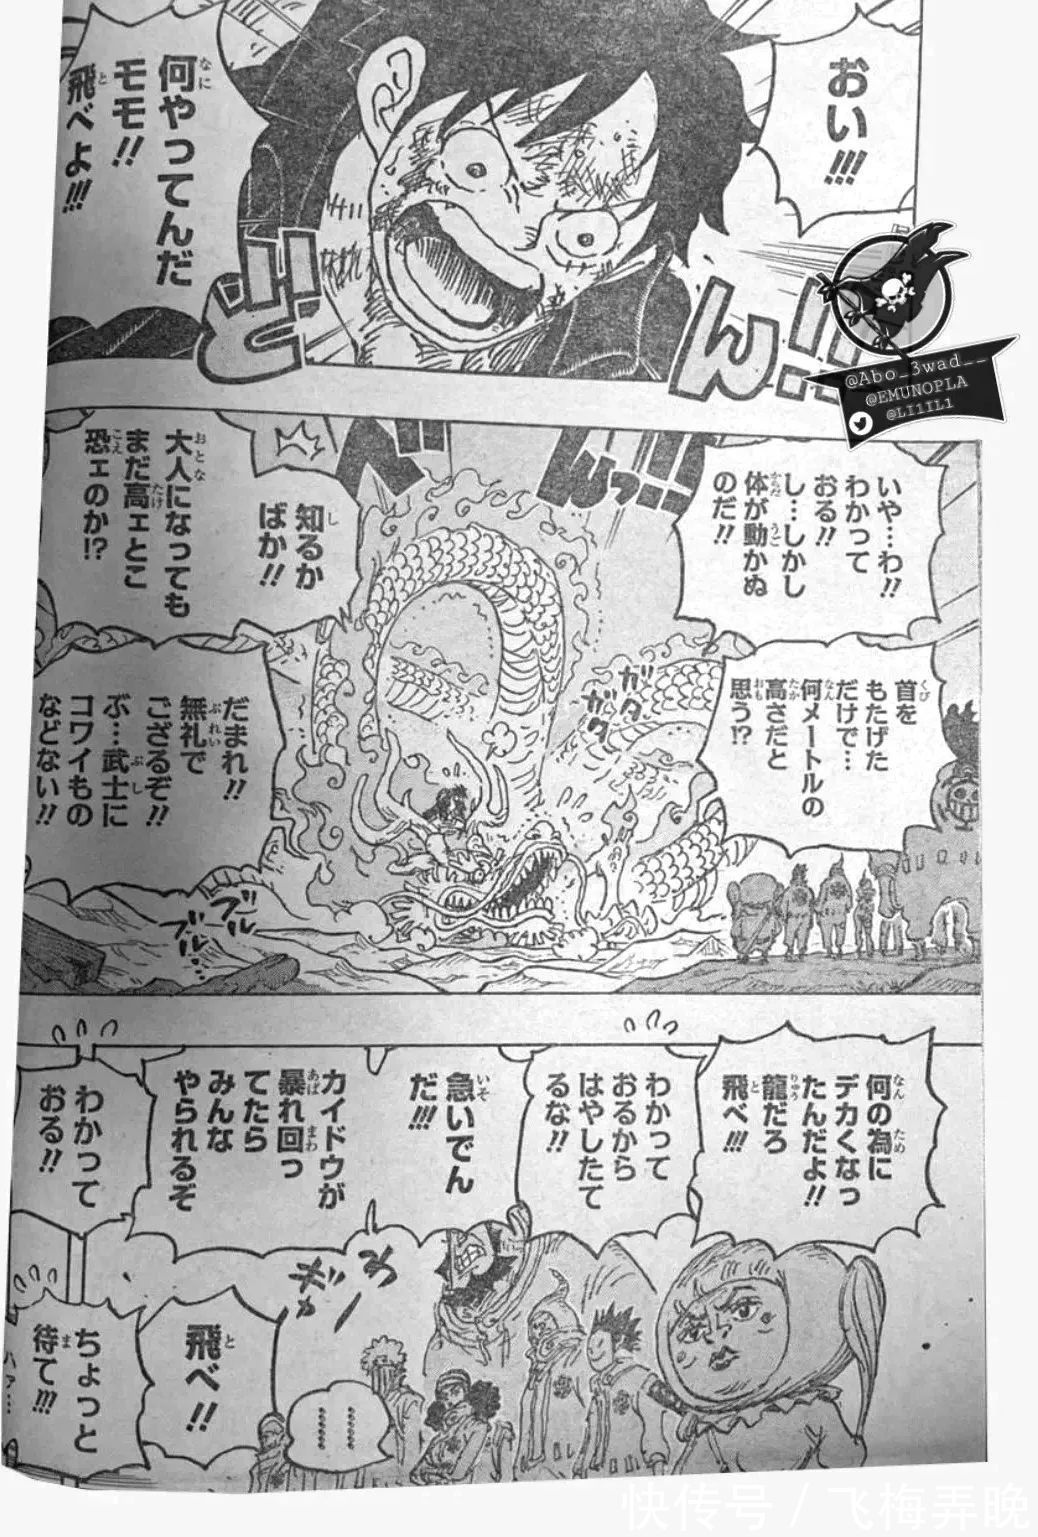 おい!!!
何やってんだ
モモ!!
飛べよ!!!
ど!!
ん!!!
@Abo_3wad__
@EMUNOPLA
@LI1IL1
いや…わ!!
わかって
おる!!
し…しかし
体が動かぬ
のだ!!
首を
もたげた
だけで…
何メートルの
高さだと
思う!?
知るか
ばか!!
大人になっても
まだ高ェとこ
恐ェのか!?
だまれ!!
無礼で
ござるぞ!!
ぶ…武士に
コワイもの
などない!!
べ
んっ!!!
ガタ
ガタ
ブル
ブル…
何の為に
デカくなっ
たんだよ!!
龍だろ
飛べ!!!
わかって
おるから
はやしたて
るな!!
急いでん
だ!!!
カイドウが
暴れ回っ
てたら
みんな
やられるぞ
わかって
おる!!
飛べ!!
ちょっと
待て!!!
ハァ…
快传号 / 飞梅弄晚